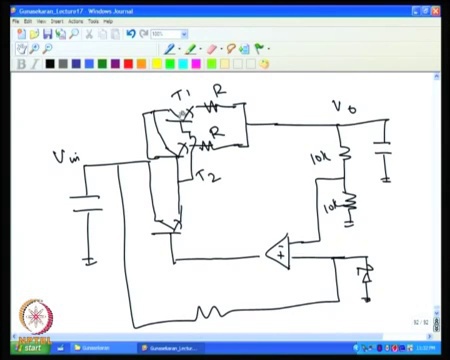 Gunasekaran_Lecture17 - Windows Journal
File Edit View Insert Actions Tools Help
100%
B I
T1
R
Vo
R
Vin
T2
10k
10k
+
92 / 92
NPTEL
start
Gunasekaran
Gunasekaran_Lectur...